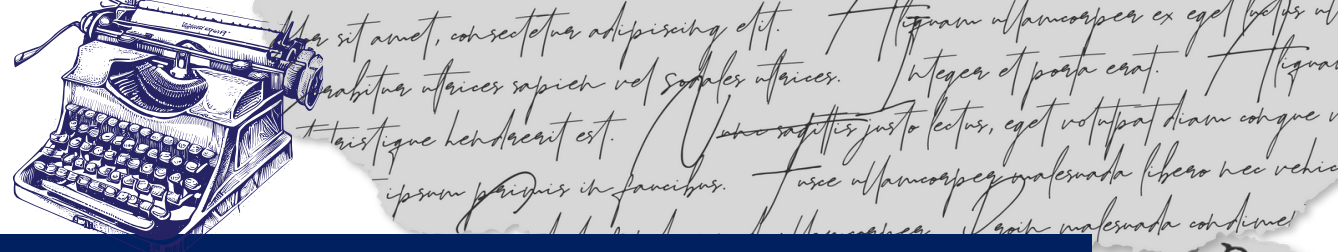 sit amet, consectetur adipiscing elit. Aliquam ullamcorper ex eget luctus
rabitur ultrices sapien vel sodales ultrices. Integer et porta erat. Aliquam
tristique hendrerit est. Nunc sagittis justo lectus, eget volutpat diam congue
ipsum primis in faucibus. Fusce ullamcorper malesuada libero nec vehic
ullamcorper. Proin malesuada condime